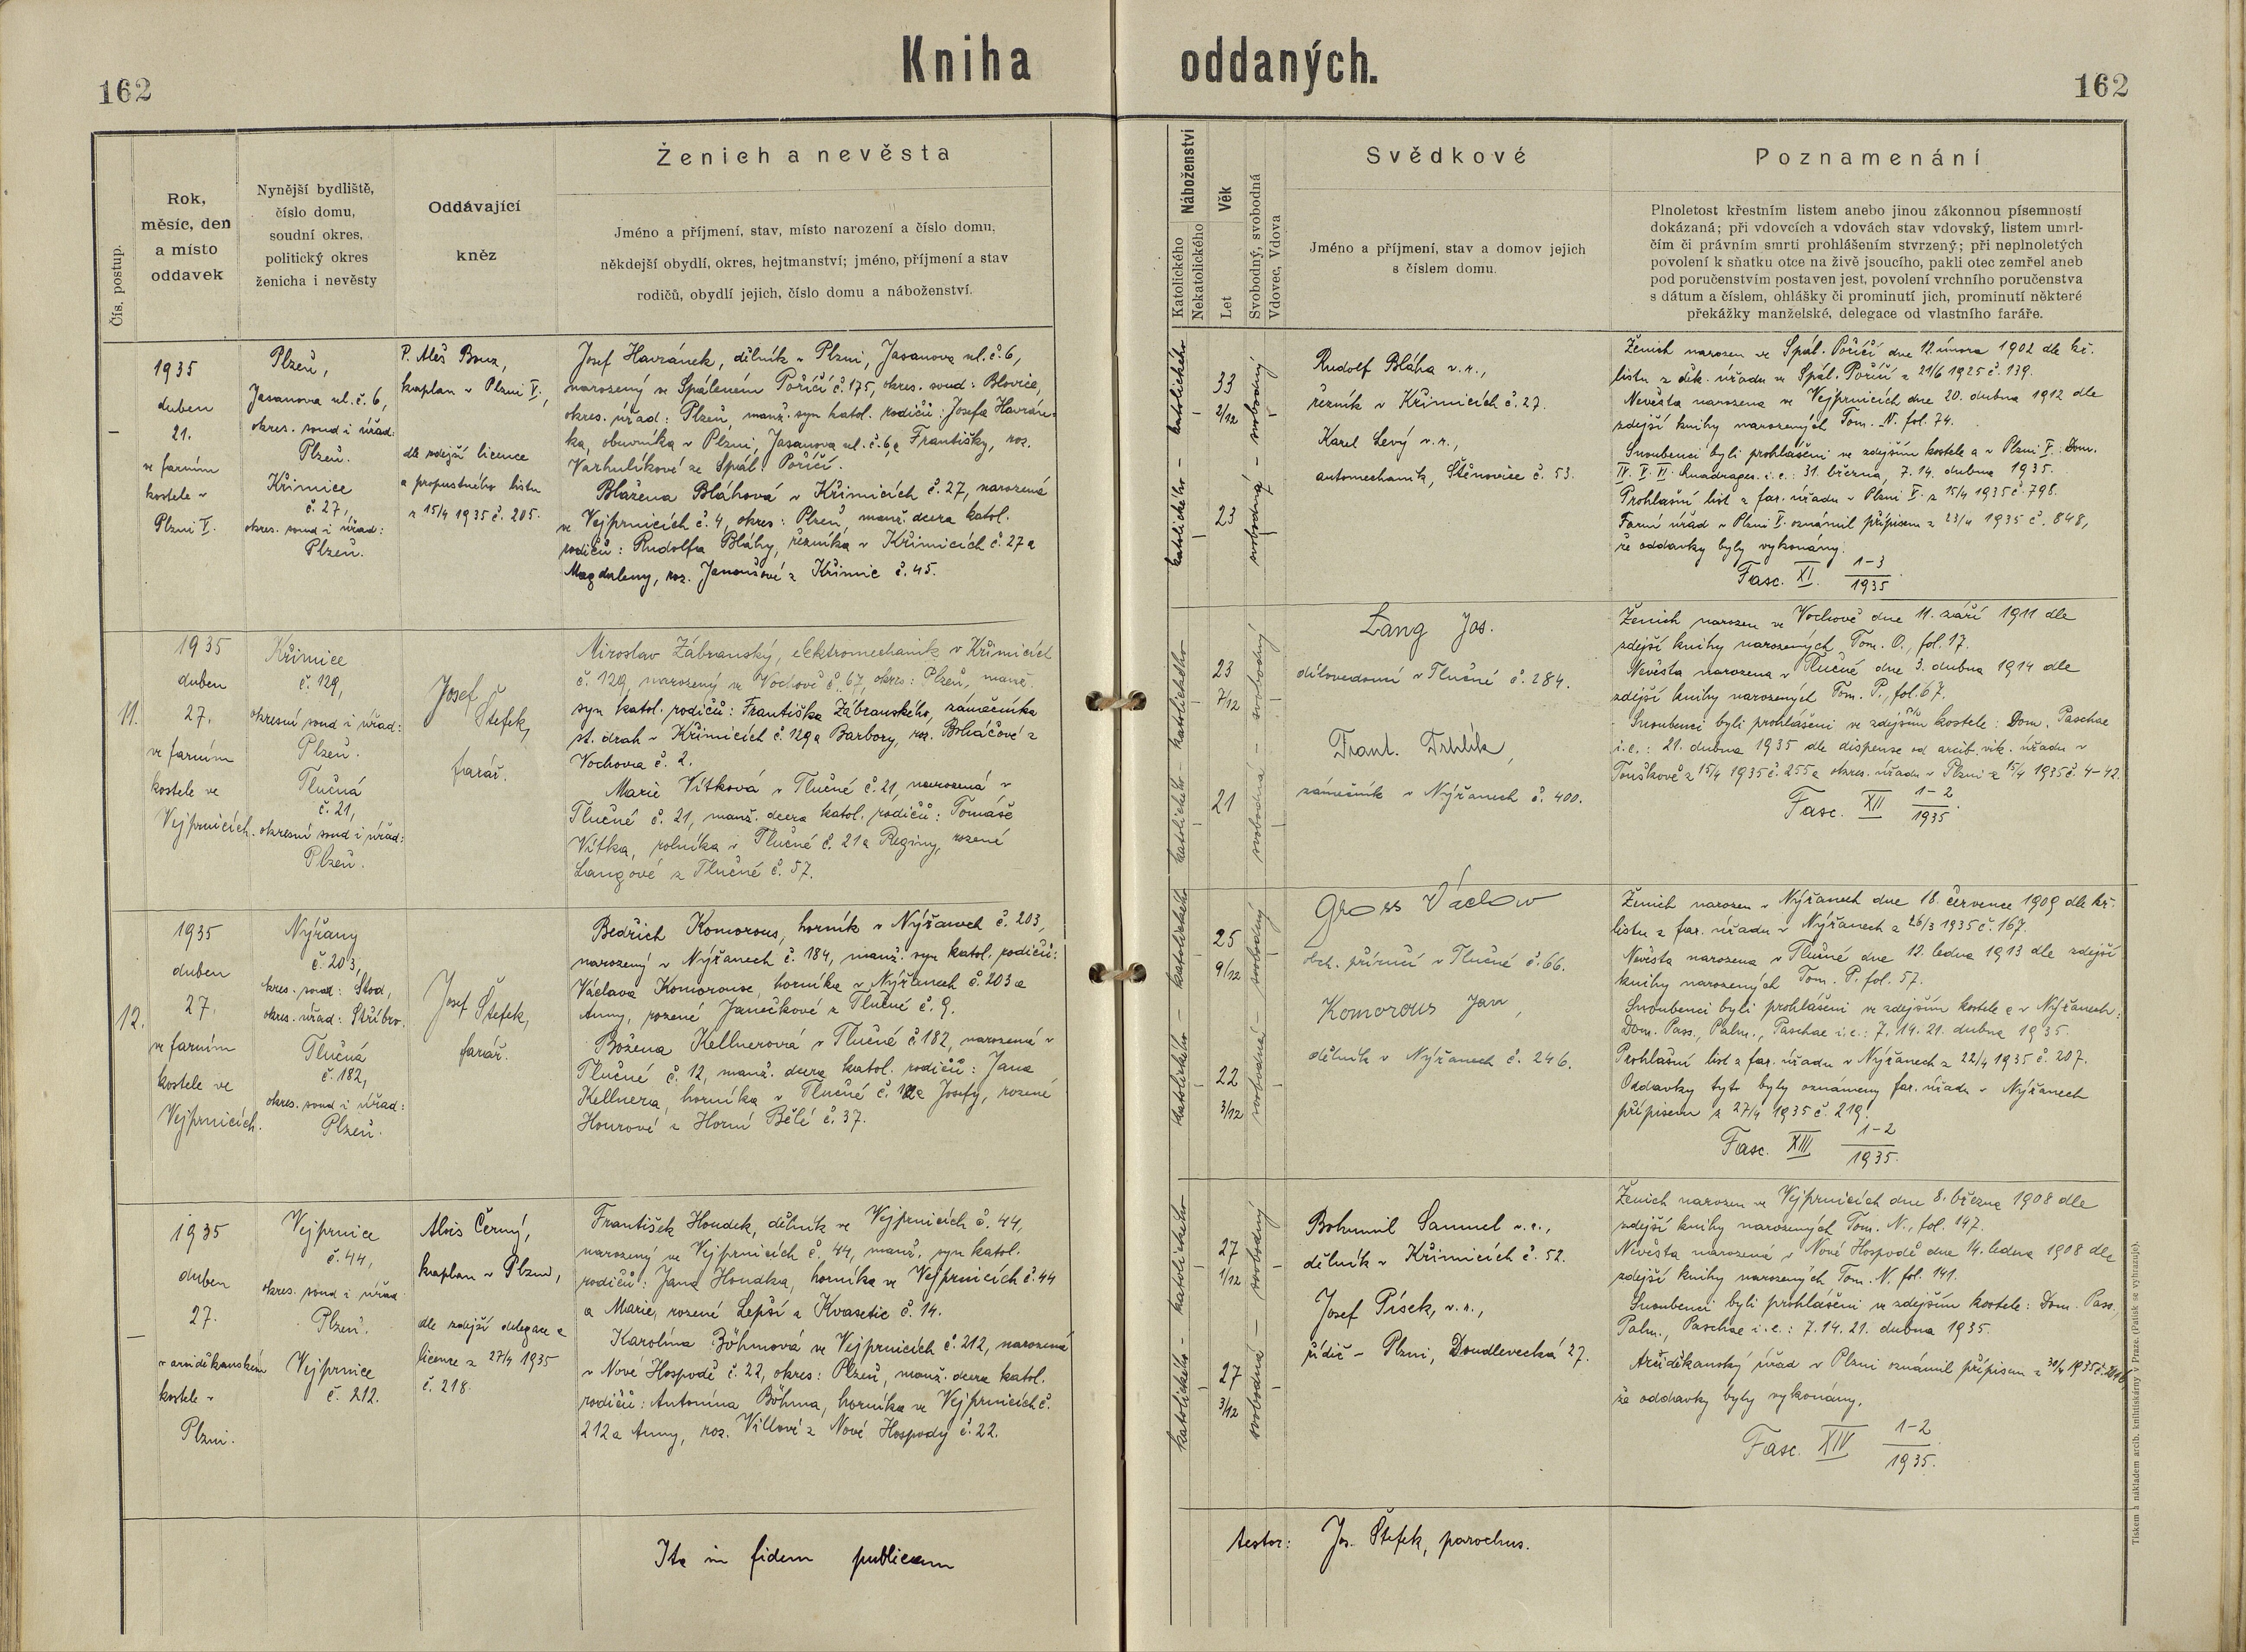 Kniha oddaných.
162
162
Čís. postup.
Rok,
měsíc, den
a místo
oddavek
Nynější bydliště,
číslo domu,
soudní okres,
politický okres
ženicha i nevěsty
Oddávající
kněz
Ženich a nevěsta
Jméno a příjmení, stav, místo narození a číslo domu,
někdejší obydlí, okres, hejtmanství; jméno, příjmení a stav
rodičů, obydlí jejich, číslo domu a náboženství.
Katolického
Nekatolického
Náboženství
Let
Věk
Svobodný, svobodná
Vdovec, Vdova
Svědkové
Jméno a příjmení, stav a domov jejich
s číslem domu.
Poznamenání
Plnoletost křestním listem anebo jinou zákonnou písemností
dokázaná; při vdovcích a vdovách stav vdovský, listem umrl-
čím či právním smrti prohlášením stvrzený; při neplnoletých
povolení k sňatku otce na živě jsoucího, pakli otec zemřel aneb
pod poručenstvím postaven jest, povolení vrchního poručenstva
s dátum a číslem, ohlášky či prominutí jich, prominutí některé
překážky manželské, delegace od vlastního faráře.
–
1935
duben
21.
ve farním
kostele v
Plzni V.
Plzeň,
Jasanova ul. č. 6,
okres. soud i úřad:
Plzeň.
Křimice
č. 27,
okres. soud i úřad:
Plzeň.
P. Aleš Bouz,
kaplan v Plzni V.,
dle zdejší licence
a propustného listu
z 15/4 1935 č. 205.
Josef Havránek, dělník v Plzni, Jasanova ul. č. 6,
narozený ve Spáleném Poříčí č. 175, okres. soud: Blovice,
okres. úřad: Plzeň, manž. syn katol. rodičů: Josefa Havrán-
ka, obuvníka v Plzni, Jasanova ul. č. 6, a Františky, roz.
Varhulíkové ze Spál. Poříčí.
Blažena Bláhová v Křimicích č. 27, narozená
ve Vejprnicích č. 4, okres: Plzeň, manž. dcera katol.
rodičů: Rudolfa Bláhy, řezníka v Křimicích č. 27 a
Magdaleny, roz. Janoušové z Křimic č. 45.
katolického – katolického
33
2/12
23
svobodná – svobodný
Rudolf Bláha v. r.,
řezník v Křimicích č. 27.
Karel Levý v. r.,
automechanik, Štěnovice č. 53.
Ženich narozen ve Spál. Poříčí dne 12. února 1902 dle kř.
listu z děk. úřadu ve Spál. Poříčí z 21/6 1925 č. 139.
Nevěsta narozena ve Vejprnicích dne 20. dubna 1912 dle
zdejší knihy narozených Tom. N. fol. 74.
Snoubenci byli prohlášeni ve zdejším kostele a v Plzni V.: Dom.
IV. V. VI. Quadrages. i. e.: 31. března, 7. 14. dubna 1935.
Prohlašní list z far. úřadu v Plzni V. z 15/4 1935 č. 798.
Farní úřad v Plzni V. oznámil přípisem z 23/4 1935 č. 848,
že oddavky byly vykonány.
Fasc. XI. 1–3
1935.
11.
1935
duben
27.
ve farním
kostele ve
Vejprnicích.
Křimice
č. 129,
okresní soud i úřad:
Plzeň.
Tlučná
č. 21,
okresní soud i úřad:
Plzeň.
Josef Štefek,
farář.
Miroslav Zábranský, elektromechanik v Křimicích
č. 129, narozený ve Vochově č. 67, okres: Plzeň, manž.
syn katol. rodičů: Františka Zábranského, zámečníka
st. drah v Křimicích č. 129 a Barbory, roz. Boháčové z
Vochova č. 2.
Marie Vítková v Tlučné č. 21, narozená v
Tlučné č. 21, manž. dcera katol. rodičů: Tomáše
Vítka, rolníka v Tlučné č. 21 a Reginy, rozené
Langové z Tlučné č. 57.
katolického – katolického
23
7/12
21
svobodná – svobodný
Lang Jos.
dílovedoucí v Tlučné č. 284.
Frant. Trhlík,
zámečník v Nýřanech č. 400.
Ženich narozen ve Vochově dne 11. září 1911 dle
zdejší knihy narozených Tom. O., fol. 17.
Nevěsta narozena v Tlučné dne 3. dubna 1914 dle
zdejší knihy narozených Tom. P., fol. 67.
Snoubenci byli prohlášeni ve zdejším kostele: Dom. Paschae
i. e.: 21. dubna 1935 dle dispense od arcib. vik. úřadu v
Touškově z 15/4 1935 č. 255 a okres. úřadu v Plzni z 15/4 1935 č. 4–42.
Fasc. XII 1–2
1935.
12.
1935
duben
27.
ve farním
kostele ve
Vejprnicích.
Nýřany
č. 203,
okres. soud: Stod,
okres. úřad: Stříbro.
Tlučná
č. 182,
okres. soud i úřad:
Plzeň.
Josef Štefek,
farář.
Bedřich Komorous, horník v Nýřanech č. 203,
narozený v Nýřanech č. 184, manž. syn katol. rodičů:
Václava Komorouse, horníka v Nýřanech č. 203 a
Anny, rozené Janečkové z Tlučné č. 9.
Božena Kellnerová v Tlučné č. 182, narozená v
Tlučné č. 12, manž. dcera katol. rodičů: Jana
Kellnera, horníka v Tlučné č. a Josefy, rozené
Hourové z Horní Bělé č. 37.
katolického – katolického
25
9/12
22
3/12
svobodná – svobodný
Gross Václav
obch. příručí v Tlučné č. 66.
Komorous Jan,
dělník v Nýřanech č. 246.
Ženich narozen v Nýřanech dne 18. července 1909 dle kř.
listu z far. úřadu v Nýřanech z 26/3 1935 č. 167.
Nevěsta narozena v Tlučné dne 12. ledna 1913 dle zdejší
knihy narozených Tom. P. fol. 57.
Snoubenci byli prohlášeni ve zdejším kostele a v Nýřanech:
Dom. Pass., Palm., Paschae i. e.: 7. 14. 21. dubna 1935.
Prohlašní list z far. úřadu v Nýřanech z 22/4 1935 č. 207.
Oddavky tyto byly oznámeny far. úřadu v Nýřanech
přípisem z 27/4 1935 č. 219.
Fasc. XIII 1–2
1935.
–
1935
duben
27.
v arciděkanském
kostele v
Plzni.
Vejprnice
č. 44,
okres. soud i úřad
Plzeň.
Vejprnice
č. 212.
Alois Černý,
kaplan v Plzni,
dle zdejší delegace a
licence z 27/4 1935
č. 218.
František Houdek, dělník ve Vejprnicích č. 44,
narozený ve Vejprnicích č. 44, manž. syn katol.
rodičů: Jana Houdka, horníka ve Vejprnicích č. 44
a Marie, rozené Lepší z Kvasetic č. 14.
Karolina Böhmová ve Vejprnicích č. 212, narozená
v Nové Hospodě č. 22, okres: Plzeň, manž. dcera katol.
rodičů: Antonína Böhma, horníka ve Vejprnicích č.
212 a Anny, roz. Villové z Nové Hospody č. 22.
katolického – katolického
27
1/12
27
3/12
svobodná – svobodný
Bohumil Samuel v. r.,
dělník v Křimicích č. 52.
Josef Písek, v. r.,
řidič – Plzni, Doudlevecká 27.
Ženich narozen ve Vejprnicích dne 8. března 1908 dle
zdejší knihy narozených Tom. N., fol. 147.
Nevěsta narozená v Nové Hospodě dne 14. ledna 1908 dle
zdejší knihy narozených Tom. N. fol. 141.
Snoubenci byli prohlášeni ve zdejším kostele: Dom. Pass.,
Palm., Paschae i. e.: 7. 14. 21. dubna 1935.
Arciděkanský úřad v Plzni oznámil přípisem z 30/4 1935 č.
že oddavky byly vykonány.
Fasc. XIV 1–2
1935.
Ita in fidem publicam
testor: Jos. Štefek, parochus.
Tiskem a nákladem arcib. knihtiskárny v Praze. (Patisk se vyhrazuje).